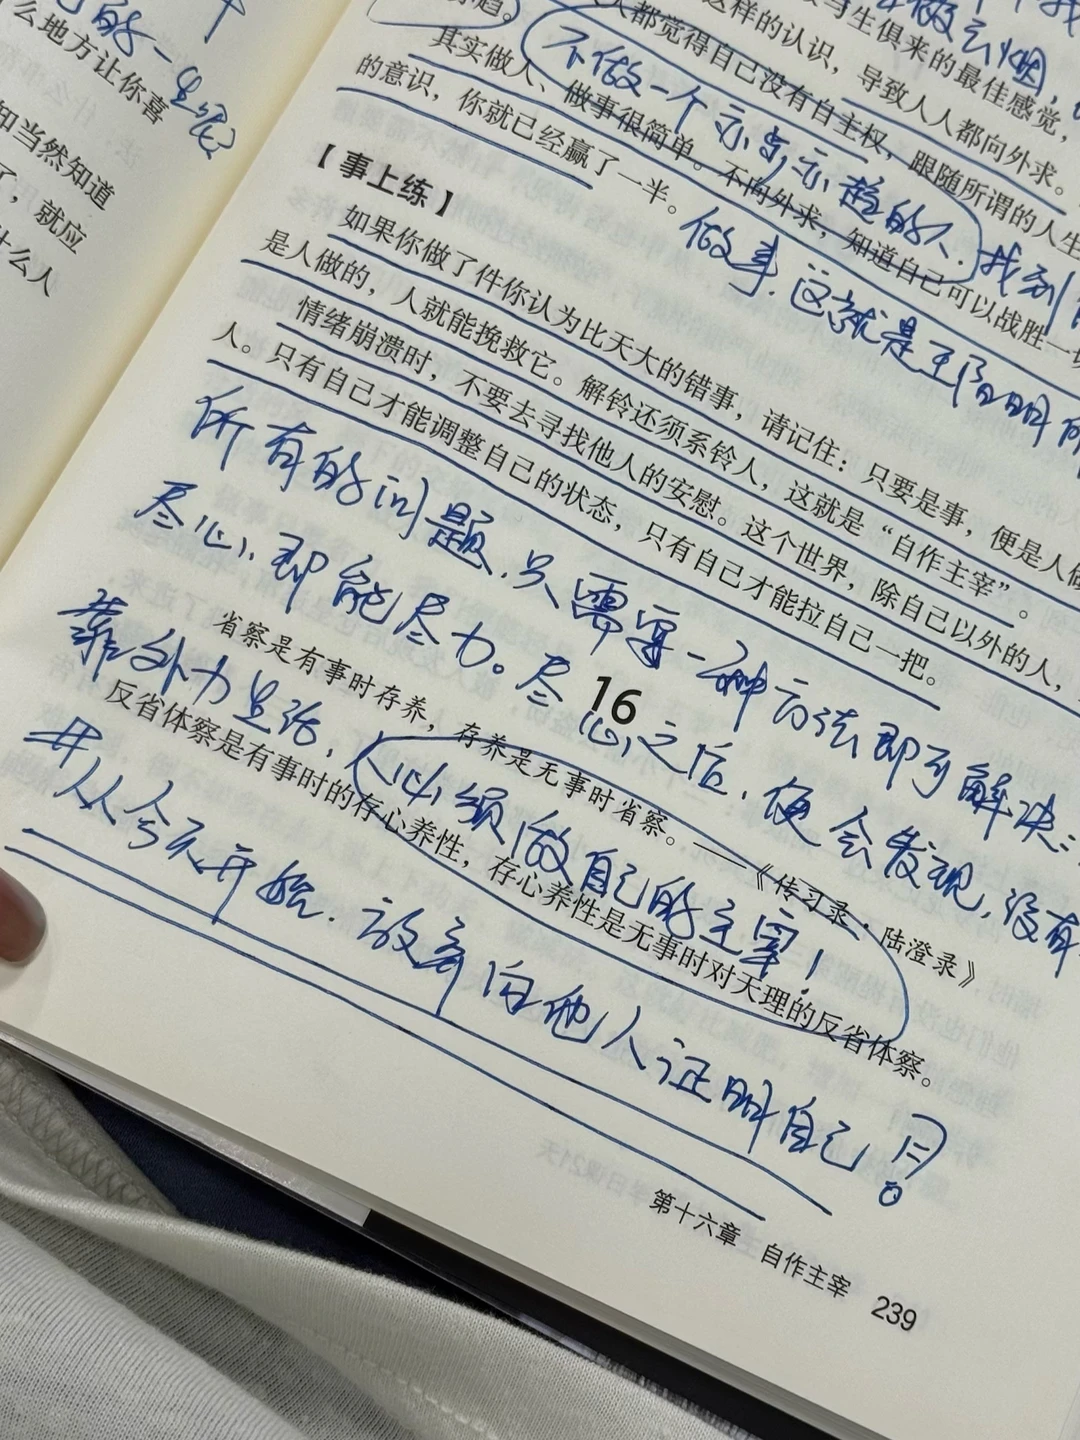 么地方让你喜
知当然知道
了，就应
什么人
生俱来的最佳感觉，
这样的认识，导致人人都向外求。
人都觉得自己没有自主权，跟随所谓的人生
其实做人、做事很简单。不向外求，知道自己可以战胜一切
的意识，你就已经赢了一半。
不做一个亦步亦趋的人.找到
做事.这就是王阳明所
【事上练】
如果你做了件你认为比天大的错事，请记住：只要是事，便是人做
是人做的，人就能挽救它。解铃还须系铃人，这就是“自作主宰”。
情绪崩溃时，不要去寻找他人的安慰。这个世界，除自己以外的人，
人。只有自己才能调整自己的状态，只有自己才能拉自己一把。
所有的问题.只需要一种方法即可解决:
尽心.即能尽力。尽心之后.便会发现,没有
靠外力
人必须做自己的主宰!
16
省察是有事时存养，存养是无事时省察。——《传习录·陆澄录》
反省体察是有事时的存心养性，存心养性是无事时对天理的反省体察。
从今天开始.放弃向他人证明自己!
第十六章 自作主宰 239